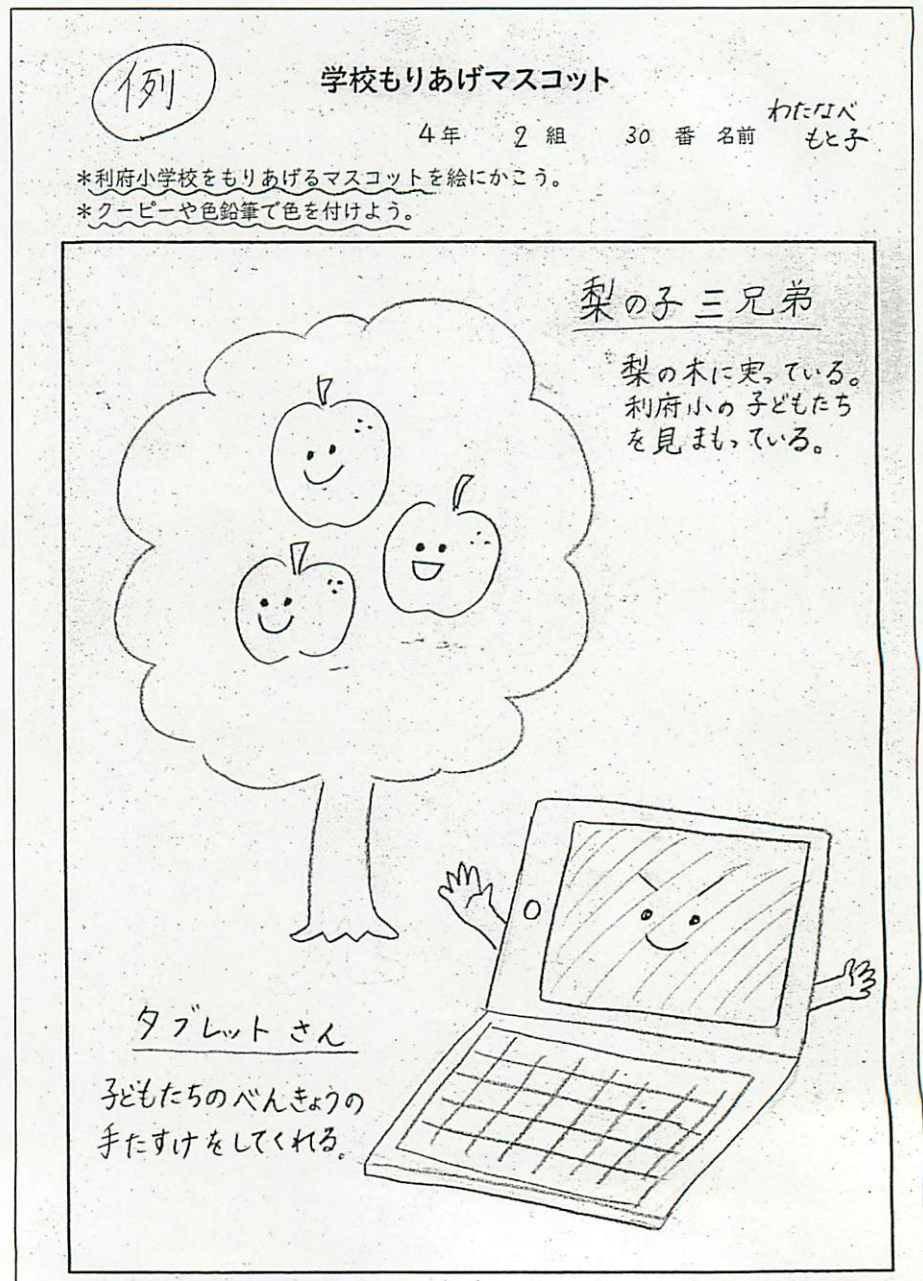 例
学校もりあげマスコット
4年 2組 30番 名前 わたなべ
もと子
*利府小学校をもりあげるマスコットを絵にかこう。
*クーピーや色鉛筆で色を付けよう。
梨の子三兄弟
梨の木に実っている。
利府小の子どもたち
を見まもっている。
タブレットさん
子どもたちのべんきょうの
手たすけをしてくれる。